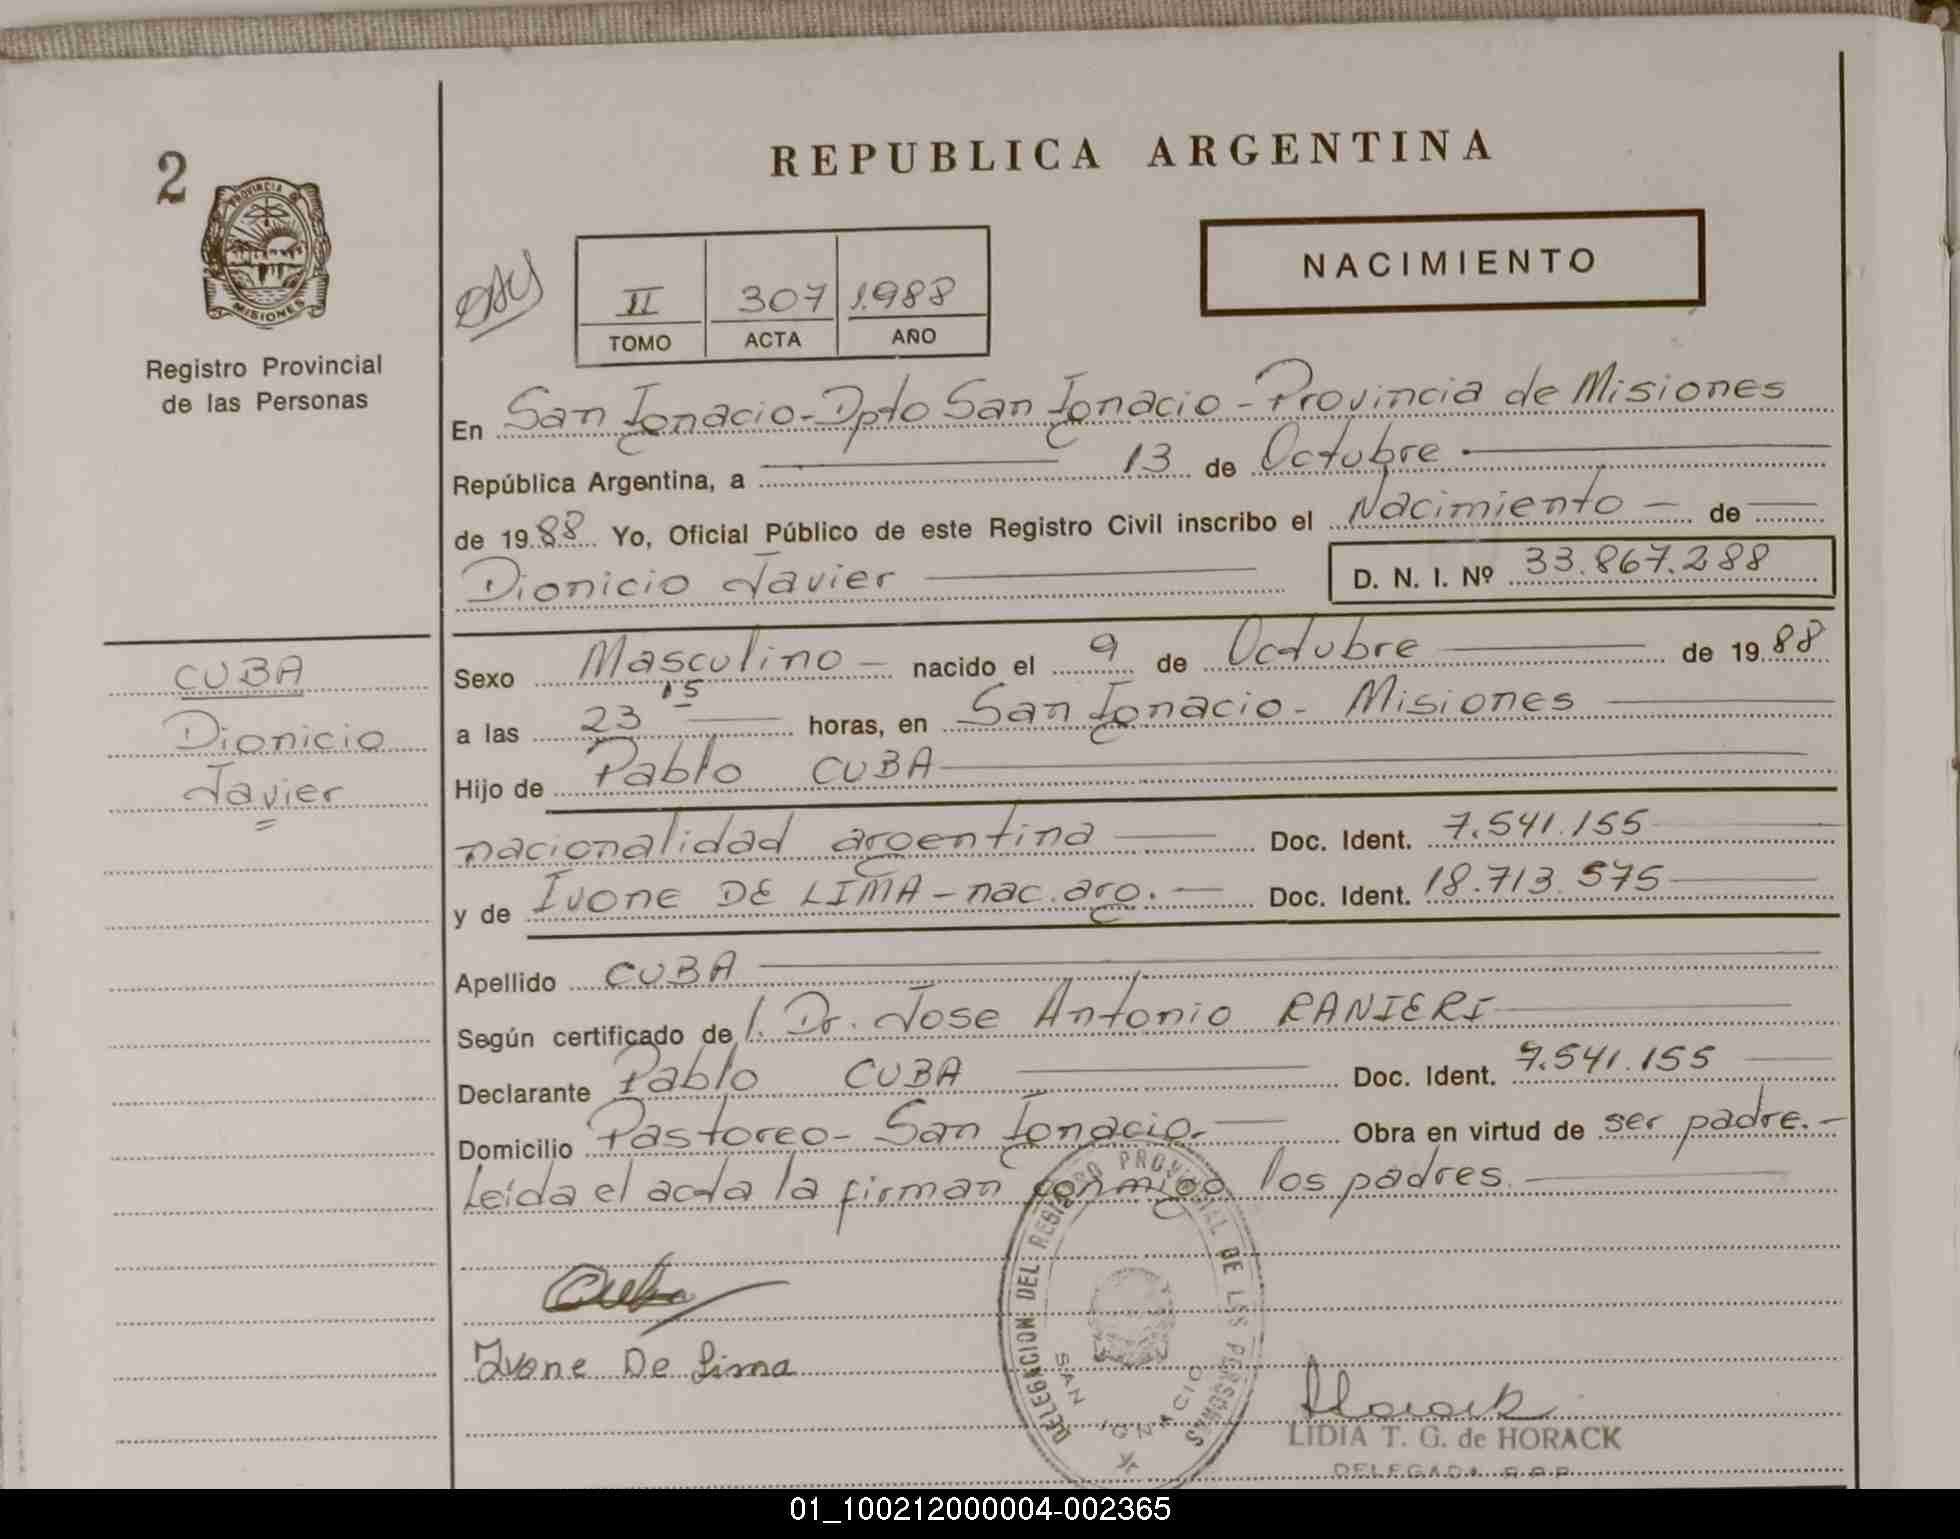 2
PROVINCIA DE
MISIONES
Registro Provincial
de las Personas
REPUBLICA ARGENTINA
II 307 1.988
TOMO ACTA AÑO
NACIMIENTO
En San Ignacio - Dpto San Ignacio - Provincia de Misiones
República Argentina, a 13 de Octubre
de 1988 Yo, Oficial Público de este Registro Civil inscribo el Nacimiento - de
Dionicio Javier D. N. I. Nº 33.867.288
CUBA
Dionicio
Javier
Sexo Masculino - nacido el 9 de Octubre de 1988
a las 23 15 horas, en San Ignacio - Misiones
Hijo de Pablo CUBA
nacionalidad argentina Doc. Ident. 7.541.155
y de Ivone DE LIMA - nac. arg. - Doc. Ident. 18.713.575
Apellido CUBA
Según certificado de l. Dr. Jose Antonio RANIERI
Declarante Pablo CUBA Doc. Ident. 7.541.155
Domicilio Pastoreo - San Ignacio. - Obra en virtud de ser padre. -
Leída el acta la firman conmigo los padres.
DELEGACION DEL REGISTRO PROVINCIAL DE LAS PERSONAS
SAN IGNACIO
Cuba
Ivone De Lima
Horack
LIDIA T. G. de HORACK
DELEGADA R.P.P.
01_100212000004-002365